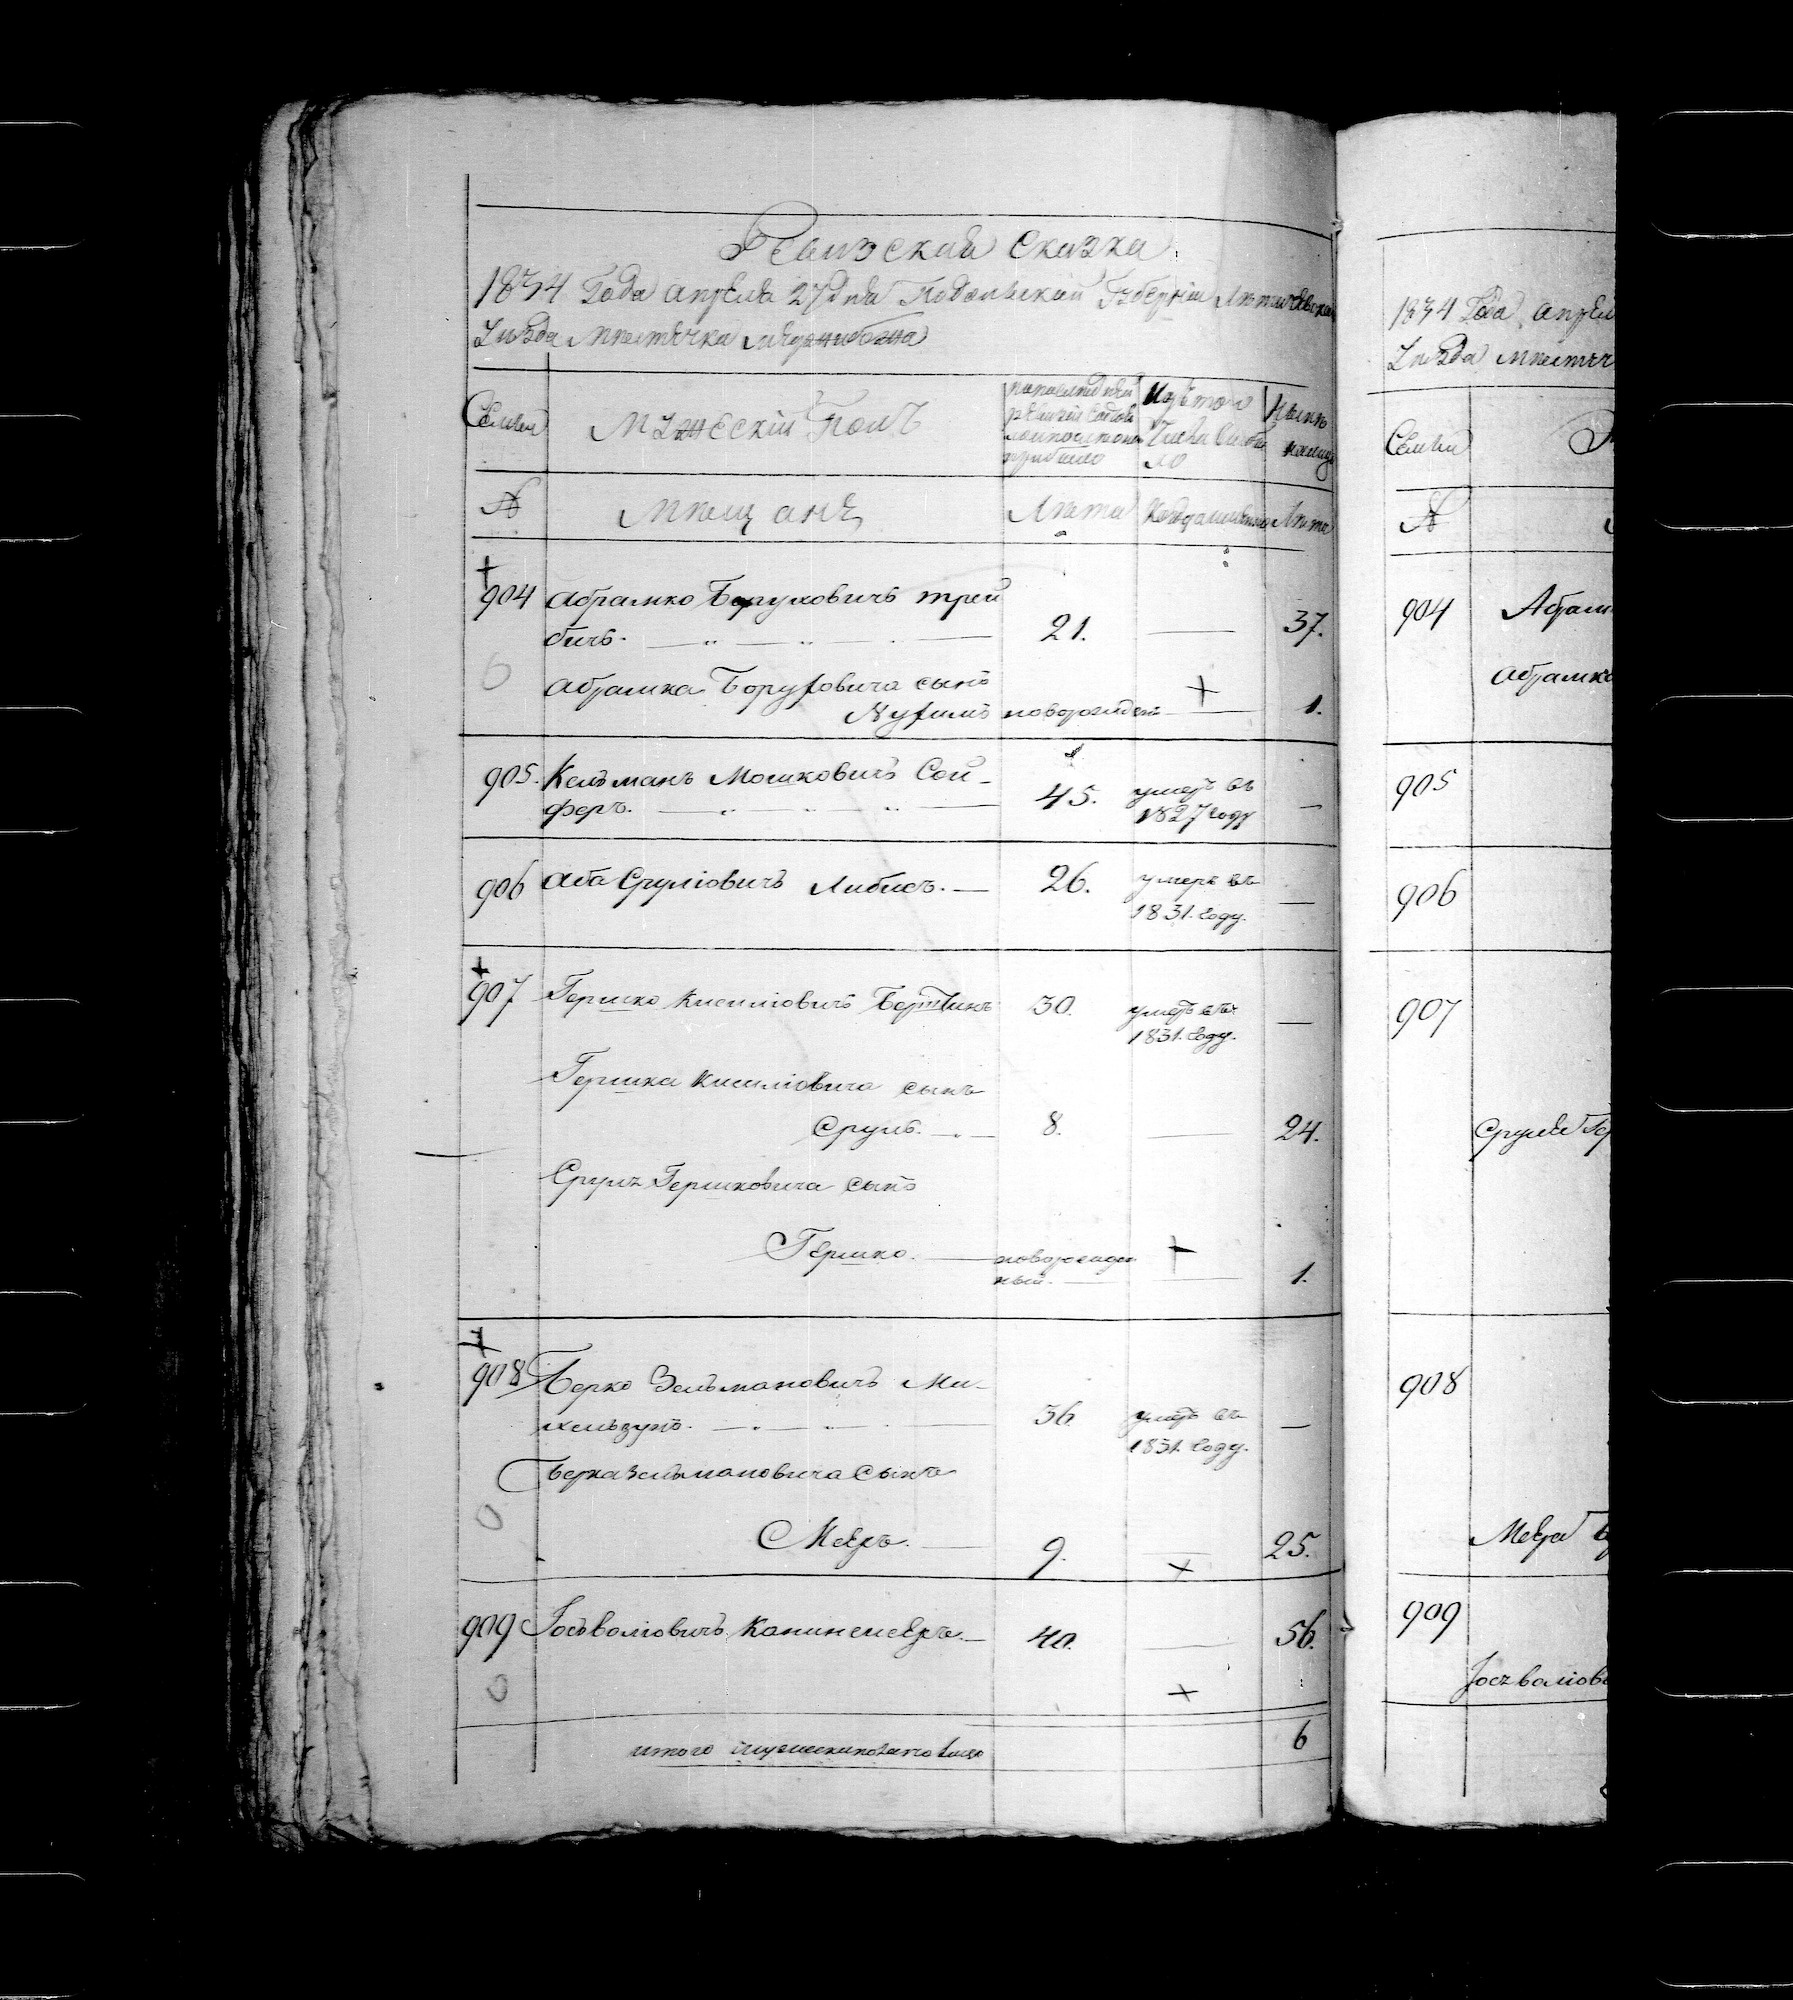 Ревизская Сказка
1834 Года апреля 27 дня Подольской Губернии Летичевска
Уезда местечка Меджибожа
Семьи
Мужеский Полъ
Изъ того
Числа выбы
ло
Ныне
налицо
№
мещане
Лета
Когда именно
Лета
904 Абрамко Борухович трей
бичъ. 21. 37.
Абрамка Боруховича сынъ
Нухимъ новорожден 1.
905. Кельманъ Мошковичъ Сой-
феръ. 45. умеръ въ
1827 году
906 Аба Сруліовичъ Либисъ. 26. умеръ въ
1831. году.
907 Гершко Кисиліовичъ 30. умеръ въ
1831. году.
Гершка Кисиліовича сынъ
Сруль. 8. 24.
Сруля Гершковича сынъ
Гершко. новорожден
ный. 1.
908 Берко Зельмановичъ Ми-
хельзунъ. 36. умеръ въ
1831. году.
Берка Зельмановича Сынъ
Мееръ. 9. 25.
909 Іось Воліовичъ 40. 56.
итого мужеска пола на лицо 6
1834 Года апрел
Уезда местеч
Семьи
№
904 Абрам
Абрамк
905
906
907
Сруля Гер
908
Меера Б
909
Іося Воліов